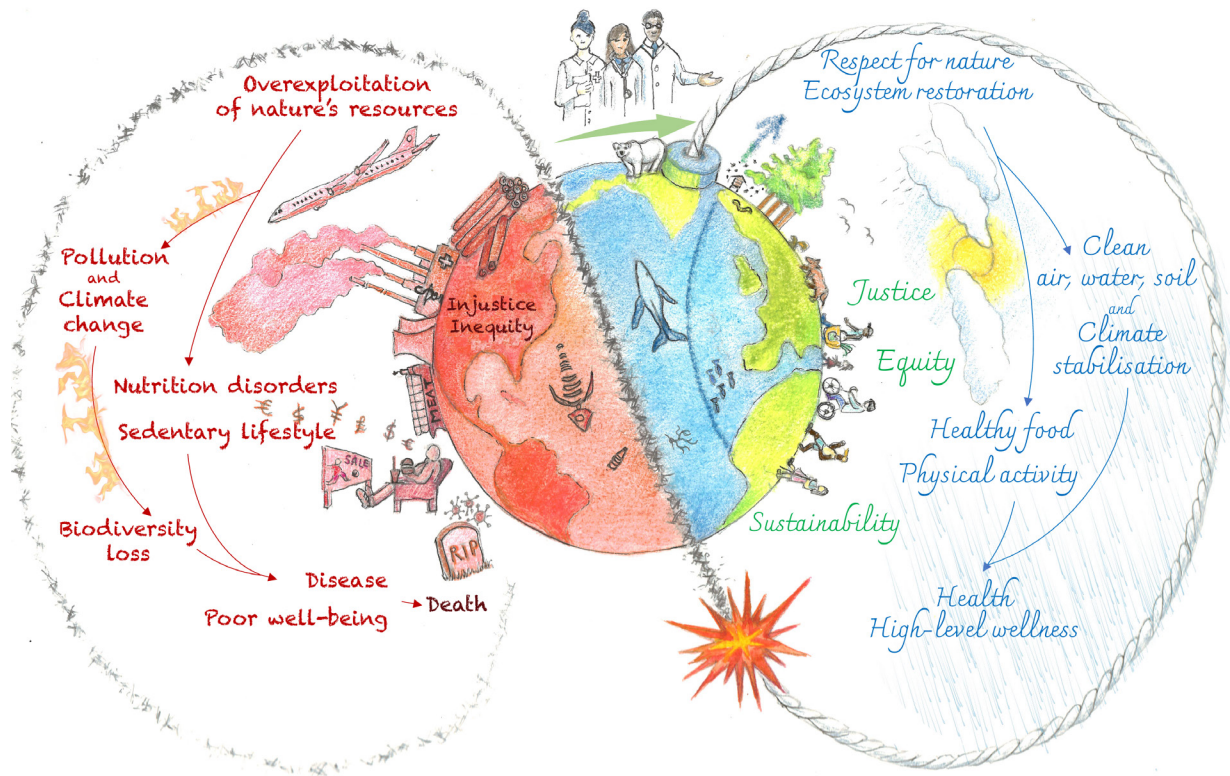 Overexploitation
of nature's resources
Pollution
and
Climate
change
Nutrition disorders
Sedentary lifestyle
Biodiversity
loss
Disease
Poor well-being
Death
Injustice
Inequity
MEAT
€ $ ¥ £ $ €
SALE
RIP
Respect for nature
Ecosystem restoration
Clean
air, water, soil
and
Climate
stabilisation
Justice
Equity
Sustainability
Healthy food
Physical activity
Health
High-level wellness